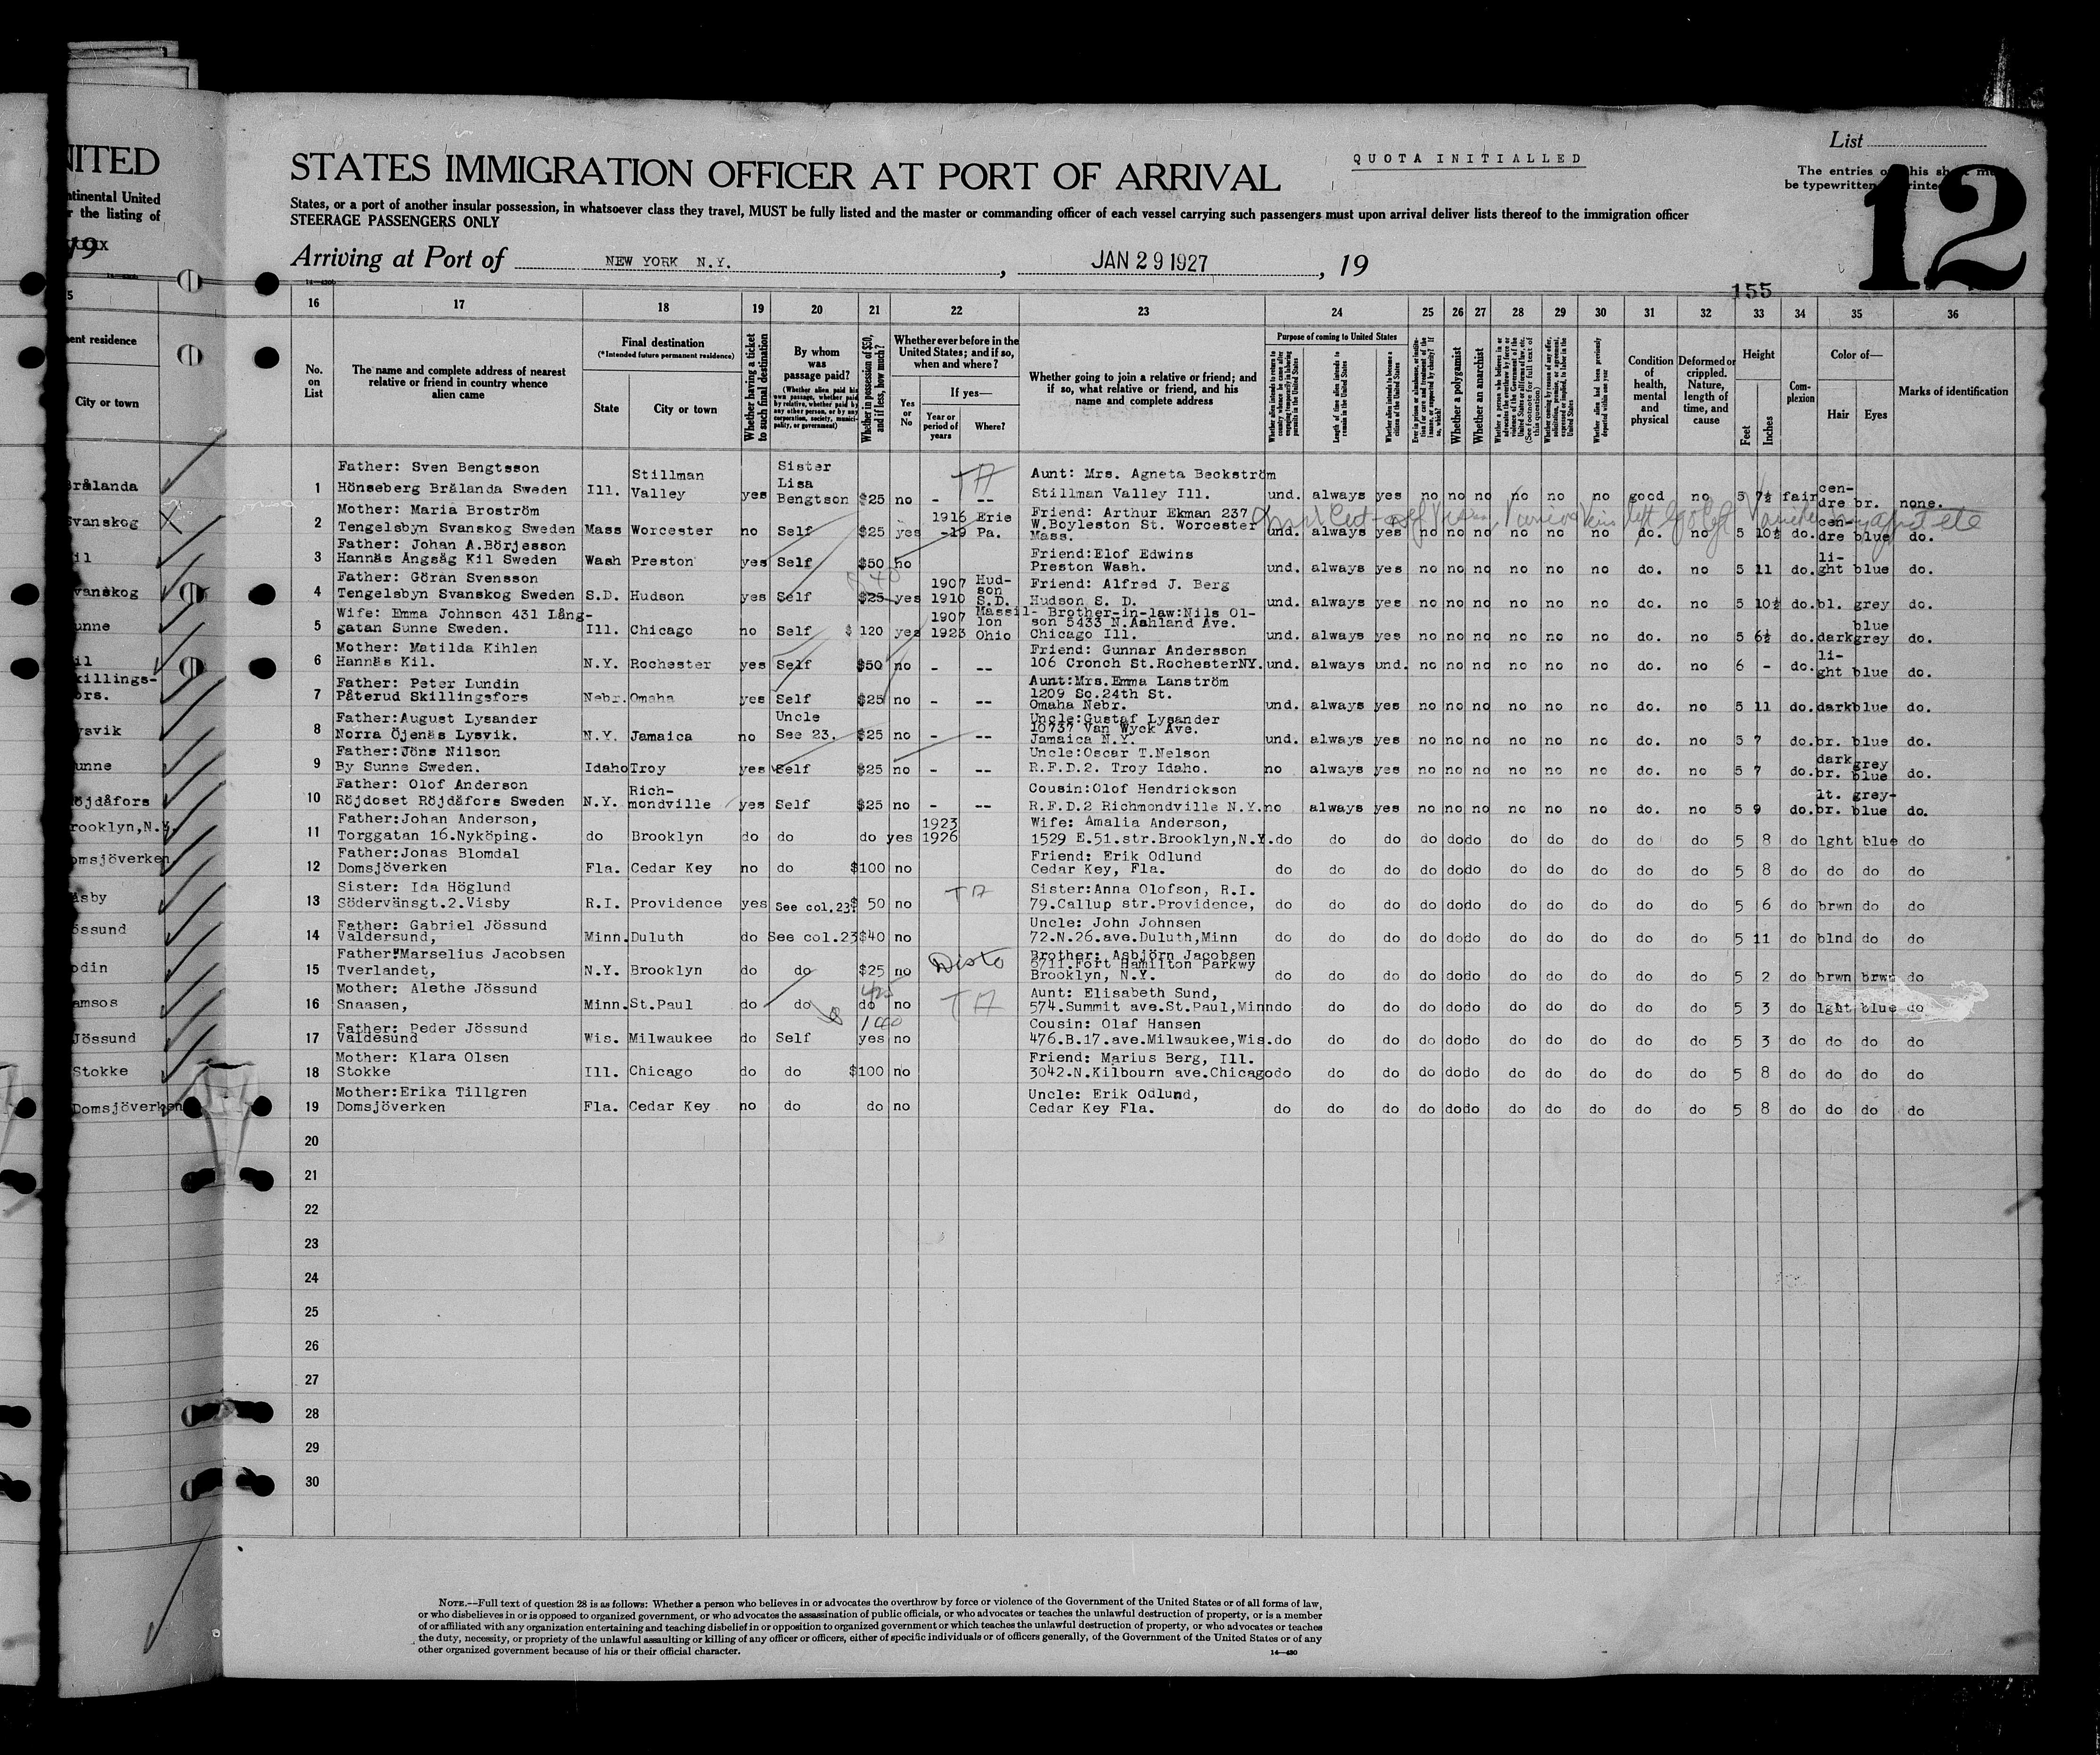 NITED
ntinental United
r the listing of
19
5
ent residence
City or town
rålanda
Svanskog
il
vanskog
unne
il
killings-
ors.
ysvik
unne
öjdåfors
rooklyn,N.Y.
omsjöverken
isby
össund
odin
amsos
Jössund
Stokke
Domsjöverken
STATES IMMIGRATION OFFICER AT PORT OF ARRIVAL
QUOTA INITIALLED
List
12
The entries on this sheet must
be typewritten or printed
States, or a port of another insular possession, in whatsoever class they travel, MUST be fully listed and the master or commanding officer of each vessel carrying such passengers must upon arrival deliver lists thereof to the immigration officer
STEERAGE PASSENGERS ONLY
Arriving at Port of NEW YORK N.Y. , JAN 29 1927 , 19
155
16 17 18 19 20 21 22 23 24 25 26 27 28 29 30 31 32 33 34 35 36
No. on List
The name and complete address of nearest relative or friend in country whence alien came
Final destination
(*Intended future permanent residence)
State
City or town
Whether having a ticket to such final destination
By whom was passage paid?
(Whether alien paid his own passage, whether paid by relative, whether paid by any other person, or by any corporation, society, municipality, or government)
Whether in possession of $50, and if less, how much?
Whether ever before in the United States; and if so, when and where?
Yes or No
If yes—
Year or period of years
Where?
Whether going to join a relative or friend; and if so, what relative or friend, and his name and complete address
Purpose of coming to United States
Length of time alien intends to remain in the United States
Whether alien intends to become a citizen of the United States
Whether a polygamist
Whether an anarchist
Condition of health, mental and physical
Deformed or crippled. Nature, length of time, and cause
Height
Feet
Inches
Complexion
Color of—
Hair
Eyes
Marks of identification
1 Father: Sven Bengtsson Hönseberg Brålanda Sweden Ill. Stillman Valley yes Sister Lisa Bengtson $25 no - -- TA Aunt: Mrs. Agneta Beckström Stillman Valley Ill. und. always yes no no no no no no good no 5 7½ fair cen-dre br. none.
2 Mother: Maria Broström Tengelsbyn Svanskog Sweden Mass Worcester no Self $25 yes 1916 -19 Erie Pa. Friend: Arthur Ekman 237 W.Boyleston St. Worcester Mass. und. always yes no no no no no no do. no 5 10½ do. cen-dre blue do.
3 Father: Johan A.Börjesson Hannäs Angsäg Kil Sweden Wash Preston yes Self $50 no Friend:Elof Edwins Preston Wash. und. always yes no no no no no no do. no 5 11 do. li-ght blue do.
4 Father: Göran Svensson Tengelsbyn Svanskog Sweden S.D. Hudson yes Self $25 yes 1907 1910 Hud-son S.D. Friend: Alfred J. Berg Hudson S. D. und. always yes no no no no no no do. no 5 10½ do. bl. grey do.
5 Wife: Emma Johnson 431 Lång-gatan Sunne Sweden. Ill. Chicago no Self $ 120 yes 1907 1923 Massil-lon Ohio Brother-in-law:Nils Ol-son 5433 N.Ashland Ave. Chicago Ill. und. always yes no no no no no no do. no 5 6½ do. dark blue grey do.
6 Mother: Matilda Kihlen Hannäs Kil. N.Y. Rochester yes Self $50 no - -- Friend: Gunnar Andersson 106 Cronch St.RochesterNY. und. always und. no no no no no no do. no 6 - do. li-ght blue do.
7 Father: Peter Lundin Påterud Skillingsfors Nebr. Omaha yes Self $25 no - -- Aunt:Mrs.Emma Lanström 1209 So.24th St. Omaha Nebr. und. always yes no no no no no no do. no 5 11 do. dark blue do.
8 Father:August Lysander Norra Öjenäs Lysvik. N.Y. Jamaica no Uncle See 23. $25 no - -- Uncle:Gustaf Lysander 10737 Van Wyck Ave. Jamaica N.Y. und. always yes no no no no no no do. no 5 7 do. br. blue do.
9 Father:Jöns Nilson By Sunne Sweden. Idaho Troy yes Self $25 no - -- Uncle:Oscar T.Nelson R.F.D.2. Troy Idaho. no always yes no no no no no no do. no 5 7 do. dark br. grey blue do.
10 Father: Olof Anderson Röjdoset Röjdåfors Sweden N.Y. Rich-mondville yes Self $25 no - -- Cousin:Olof Hendrickson R.F.D.2 Richmondville N.Y. no always yes no no no no no no do. no 5 9 do. lt. br. grey-blue do.
11 Father:Johan Anderson, Torggatan 16.Nyköping. do Brooklyn do do do yes 1923 1926 Wife: Amalia Anderson, 1529 E.51.str.Brooklyn,N.Y. do do do do do do do do do do do 5 8 do lght blue do
12 Father:Jonas Blomdal Domsjöverken Fla. Cedar Key no do $100 no Friend: Erik Odlund Cedar Key, Fla. do do do do do do do do do do do 5 8 do do do do
13 Sister: Ida Höglund Södervänsgt.2.Visby R.I. Providence yes See col.23 $ 50 no TA Sister:Anna Olofson, R.I. 79.Callup str.Providence, do do do do do do do do do do do 5 6 do brwn do do
14 Father: Gabriel Jössund Valdersund, Minn. Duluth do See col.23 $40 no Uncle: John Johnsen 72.N.26.ave.Duluth,Minn do do do do do do do do do do do 5 11 do blnd do do
15 Father:Marselius Jacobsen Tverlandet, N.Y. Brooklyn do do $25 no Brother: Asbjörn Jacobsen 6711.Fort Hamilton Parkwy Brooklyn, N.Y. do do do do do do do do do do do 5 2 do brwn brwn do
16 Mother: Alethe Jössund Snaasen, Minn. St.Paul do do do no TA Aunt: Elisabeth Sund, 574.Summit ave.St.Paul,Minn do do do do do do do do do do do 5 3 do lght blue do
17 Father: Peder Jössund Valdesund Wis. Milwaukee do Self yes no Cousin: Olaf Hansen 476.B.17.ave.Milwaukee,Wis. do do do do do do do do do do do 5 3 do do do do
18 Mother: Klara Olsen Stokke Ill. Chicago do do $100 no Friend: Marius Berg, Ill. 3042.N.Kilbourn ave.Chicago do do do do do do do do do do do 5 8 do do do do
19 Mother:Erika Tillgren Domsjöverken Fla. Cedar Key no do do no Uncle: Erik Odlund, Cedar Key Fla. do do do do do do do do do do do 5 8 do do do do
20
21
22
23
24
25
26
27
28
29
30
NOTE.—Full text of question 28 is as follows: Whether a person who believes in or advocates the overthrow by force or violence of the Government of the United States or of all forms of law,
or who disbelieves in or is opposed to organized government, or who advocates the assassination of public officials, or who advocates or teaches the unlawful destruction of property, or is a member
of or affiliated with any organization entertaining and teaching disbelief in or opposition to organized government or which teaches the unlawful destruction of property, or who advocates or teaches
the duty, necessity, or propriety of the unlawful assaulting or killing of any officer or officers, either of specific individuals or of officers generally, of the Government of the United States or of any
other organized government because of his or their official character.
14—430